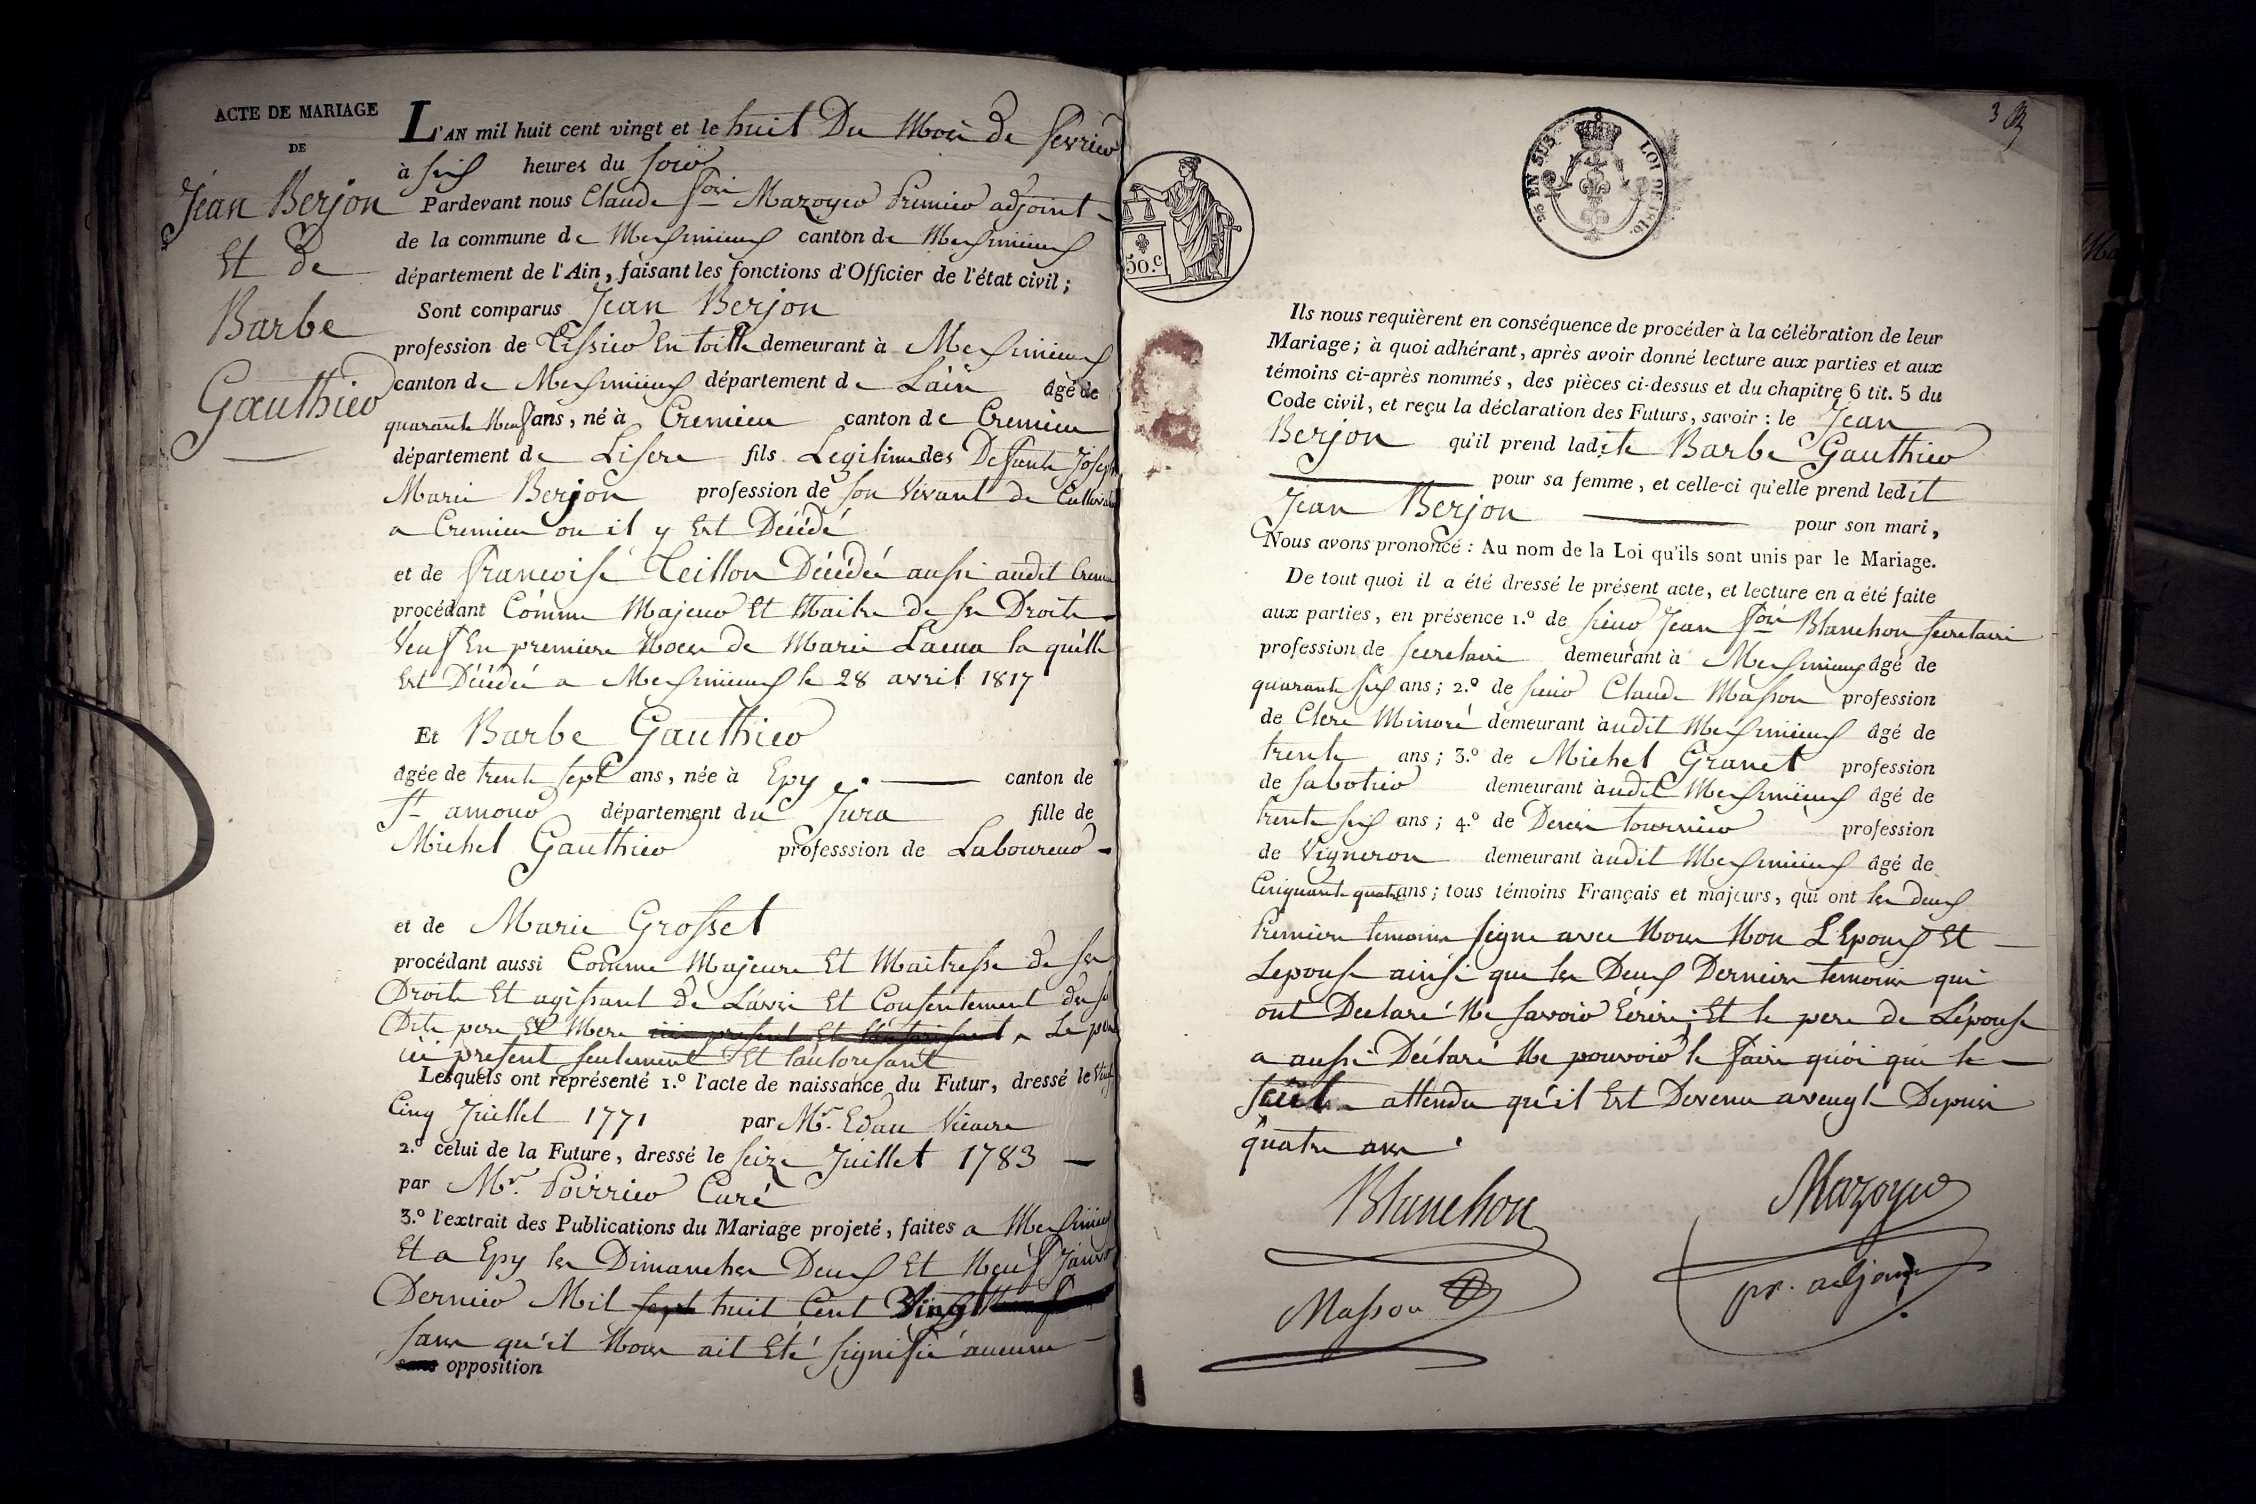 ACTE DE MARIAGE
DE
Jean Berjon
Et de
Barbe
Gauthier
L'AN mil huit cent vingt et le huit Du Mois de fevrier
à six heures du soir
Pardevant nous Claude fois Mazoyer Premier adjoint
de la commune de Meximieux canton de Meximieux
département de l'Ain, faisant les fonctions d'Officier de l'état civil;
Sont comparus Jean Berjon
profession de Tissier En toille demeurant à Meximieux
canton de Meximieux département de Lain âgé de
quarante Neuf ans, né à Cremieu canton de Cremieu
département de Lisere fils Legitime des Defunts Joseph
Marie Berjon profession de son Vivant de Cultivateur
a Cremieu ou il y Est Décédé
et de francoise Teillon Décédée aussi audit Cremieu
procédant Comme Majeur Et Maitre de ses Droits
Veuf En premiere Noces de Marie Lacua la quelle
Est Décédée a Meximieux le 28 avril 1817
Et Barbe Gauthier
âgée de trente sept ans, née à Epy canton de
St amour département du Jura fille de
Michel Gauthier professsion de Laboureur
et de Marie Grosset
procédant aussi Comme Majeure Et Maitresse de ses
Droits Et agissant de L'avis Et Consentement des
Dits pere Et Mere ici present Et l'autorisant Le pere
ici present seulement Et l'autorisant
Lesquels ont représenté 1.º l'acte de naissance du Futur, dressé le Vingt
Cinq Juillet 1771 par Mr. Edau Vicaire
2.º celui de la Future, dressé le seize Juillet 1783
par Mr. Poirrier Curé
3.º l'extrait des Publications du Mariage projeté, faites a Meximieux
Et a Epy les Dimanches Deux Et Neuf Janvier
Dernier Mil sept huit Cent Vingt
sans qu'il Nous ait Eté signifié aucune
sans opposition
3
25 EN SUS. LOI DE 1816.
50.c
Ils nous requièrent en conséquence de procéder à la célébration de leur
Mariage; à quoi adhérant, après avoir donné lecture aux parties et aux
témoins ci-après nommés, des pièces ci-dessus et du chapitre 6 tit. 5 du
Code civil, et reçu la déclaration des Futurs, savoir : le Jean
Berjon qu'il prend ladite Barbe Gauthier
pour sa femme, et celle-ci qu'elle prend ledit
Jean Berjon pour son mari,
Nous avons prononcé : Au nom de la Loi qu'ils sont unis par le Mariage.
De tout quoi il a été dressé le présent acte, et lecture en a été faite
aux parties, en présence 1.º de sieur Jean fois Blanchon secretaire
profession de secretaire demeurant à Meximieux âgé de
quarante six ans; 2.º de sieur Claude Masson profession
de Clerc Minoré demeurant audit Meximieux âgé de
trente ans; 3.º de Michel Granet profession
de sabotier demeurant audit Meximieux âgé de
trente six ans; 4.º de Denis tournier profession
de Vigneron demeurant audit Meximieux âgé de
Cinquante quatre ans; tous témoins Français et majeurs, qui ont les deux
Premiers temoins signe avec Nous Non L'Epoux Et
Lepouse ainsi que les Deux Derniers temoins qui
ont Declaré Ne savoir Ecrire; Et le pere de L'épouse
a aussi Déclaré Ne pouvoir le faire quoi que le
sait attendu qu'il Est Devenu aveugle Depuis
quatre ans.
Blanchon
Mazoyer
Masson
pr. adjoint